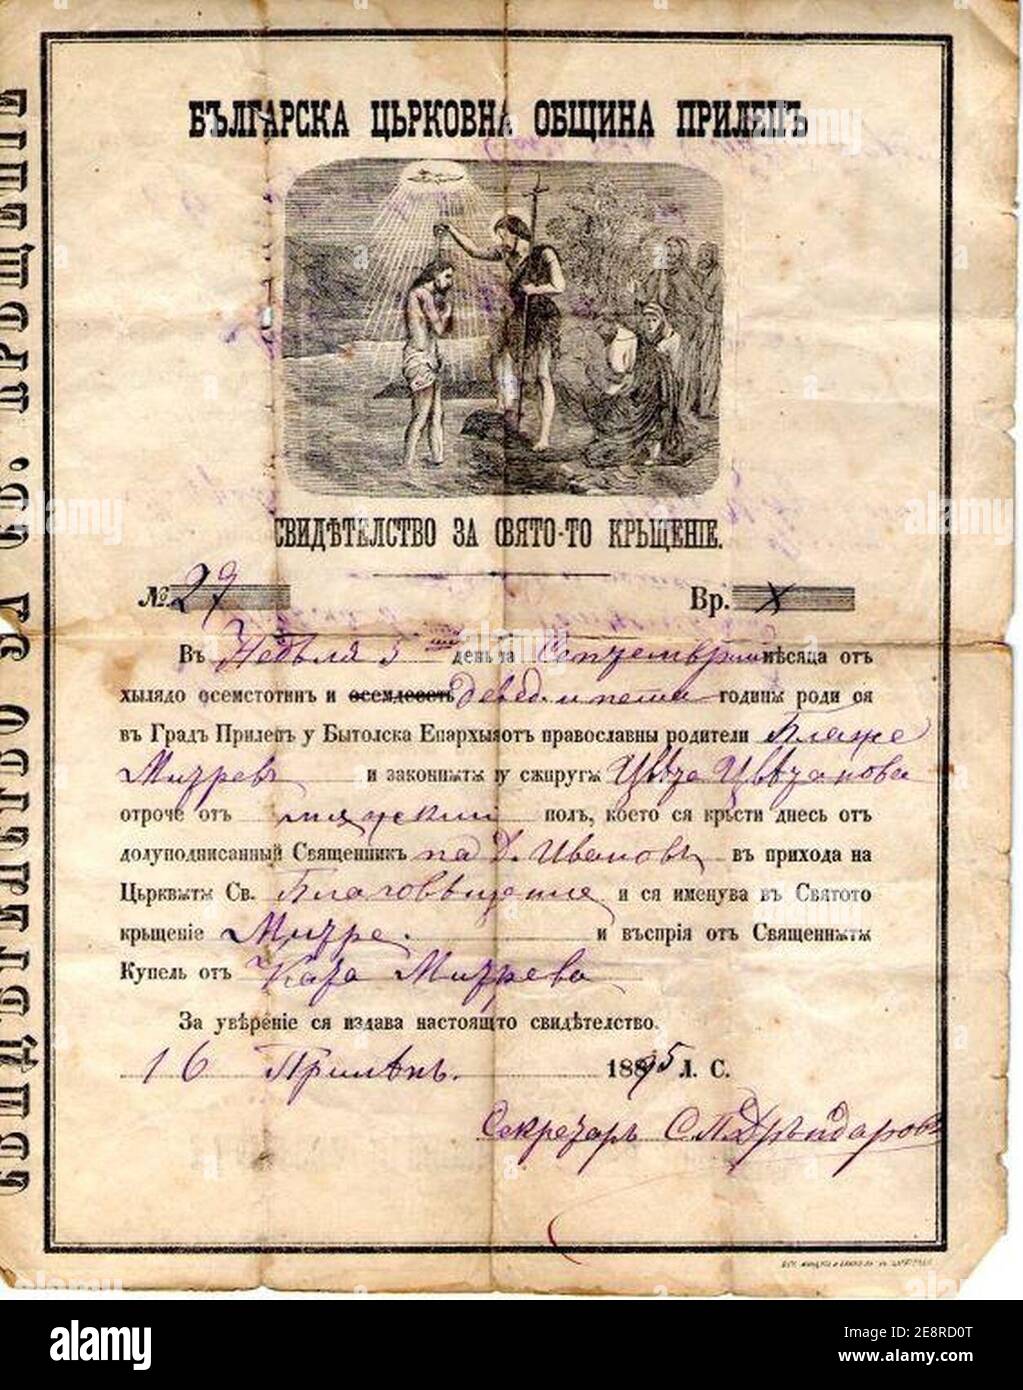 БЪЛГАРСКА ЦЪРКОВНА ОБЩИНА ПРИЛЕПЪ
СВИДѢТЕЛСТВО ЗА СВЯТО-ТО КРЬЩЕНІЕ.
№ 29 Вр. X
Въ Недѣля 3 ий день на Септемврий мѣсяца отъ
хылядо осемстотинъ и осемдесеть девед. и пета годинѫ роди ся
въ Градъ Прилепъ у Бытолска Епархыѭ отъ православны родители Блаже
Митревъ и законнѫтѫ му сѫпругѫ Цвѣта Цвѣтанова
отроче отъ мѫжский полъ, което ся крьсти днесь отъ
долуподписанный Священникъ па Д. Ивановъ въ прихода на
Църквѫтѫ Св. Благовѣщение и ся именува въ Святото
крьщеніе Митре. и въспрія отъ Священнѫтѫ
Купель отъ Ката Митрева
За увѣреніе ся издава настоящто свидѣтелство.
16 Прилѣпъ. 1895 Л. С.
Секретарь С. П. Дрѣндаровъ
СВИДѢТЕЛСТВО ЗА СВ. КРЬЩЕНІЕ
alamy
Image ID: 2E8RD0T
www.alamy.com